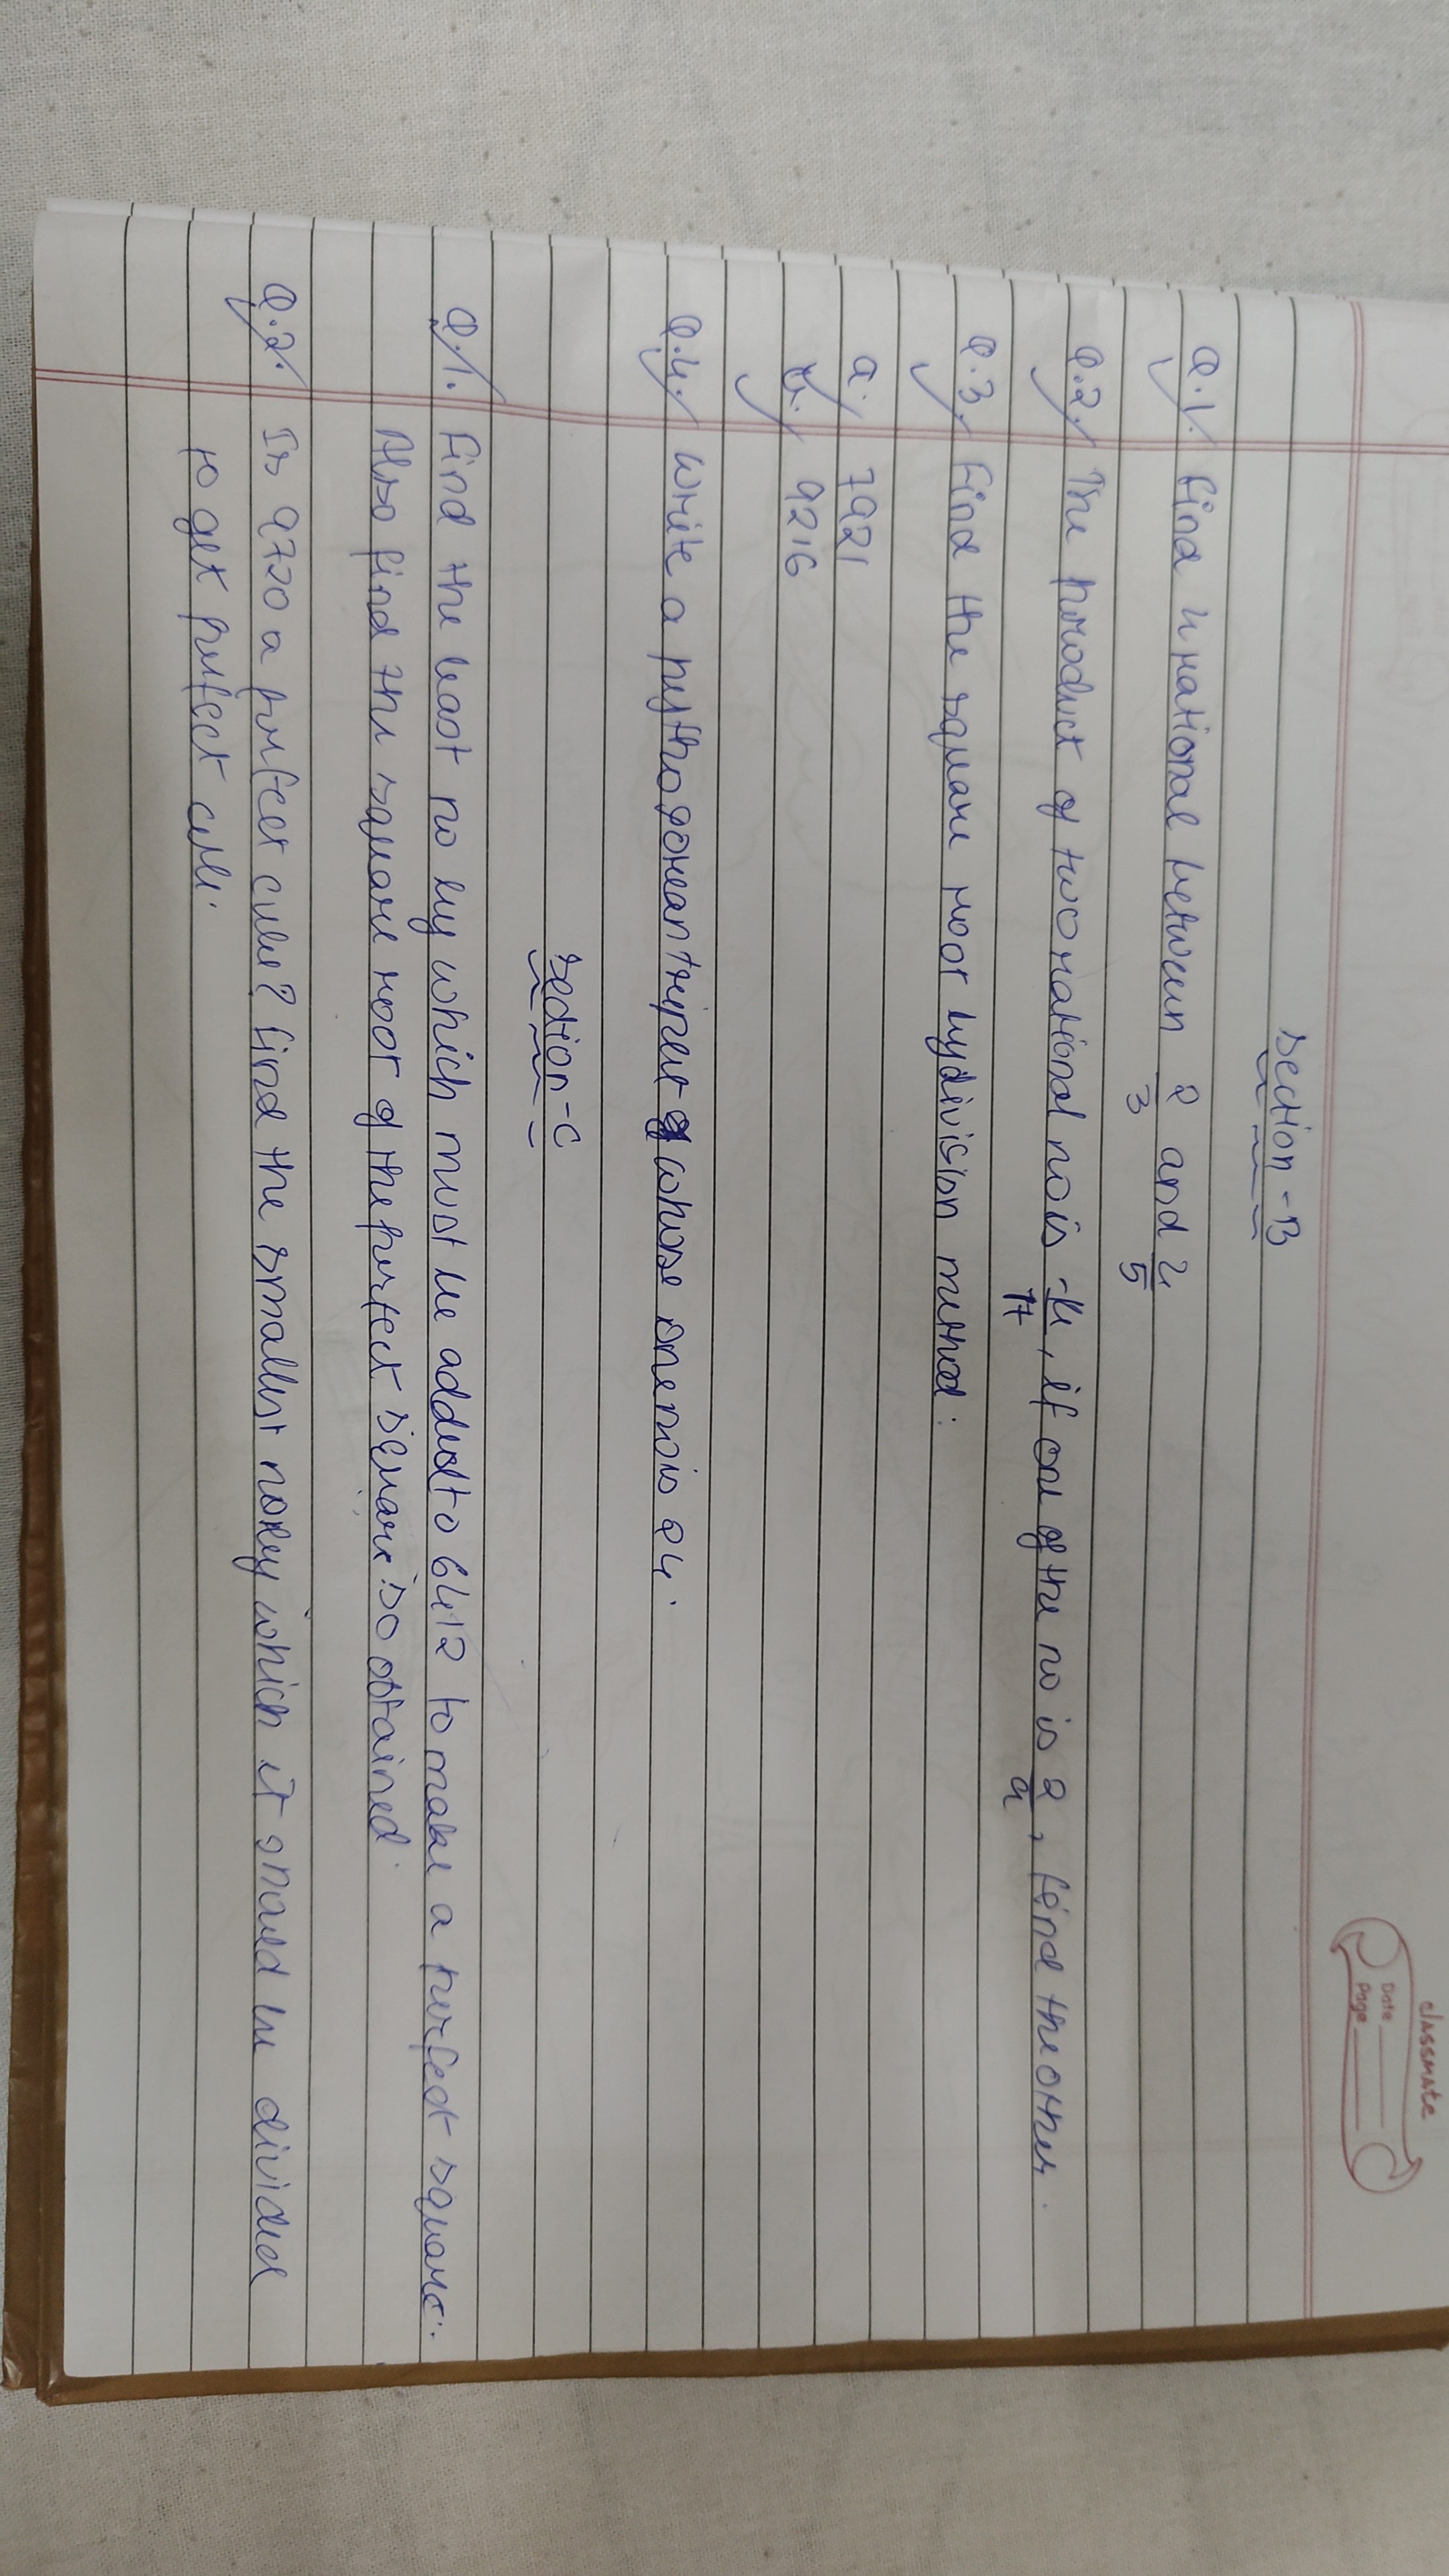 classmate
Date
Page
Section - B
Q.1. Find 4 rational between 2/3 and 4/5
Q.2. The product of two rational no is -4/17, if one of the no is 2/9, find the other.
Q.3. Find the square root by division method:
a. 7921
b. 9216
Q.4. Write a pythogorean triplet whose one no is 24.
Section - C
Q.1. Find the least no by which must be added to 6412 to make a perfect square.
Also find the square root of the perfect square so obtained.
Q.2. Is 9720 a perfect cube? Find the smallest no by which it should be divided
to get perfect cube.